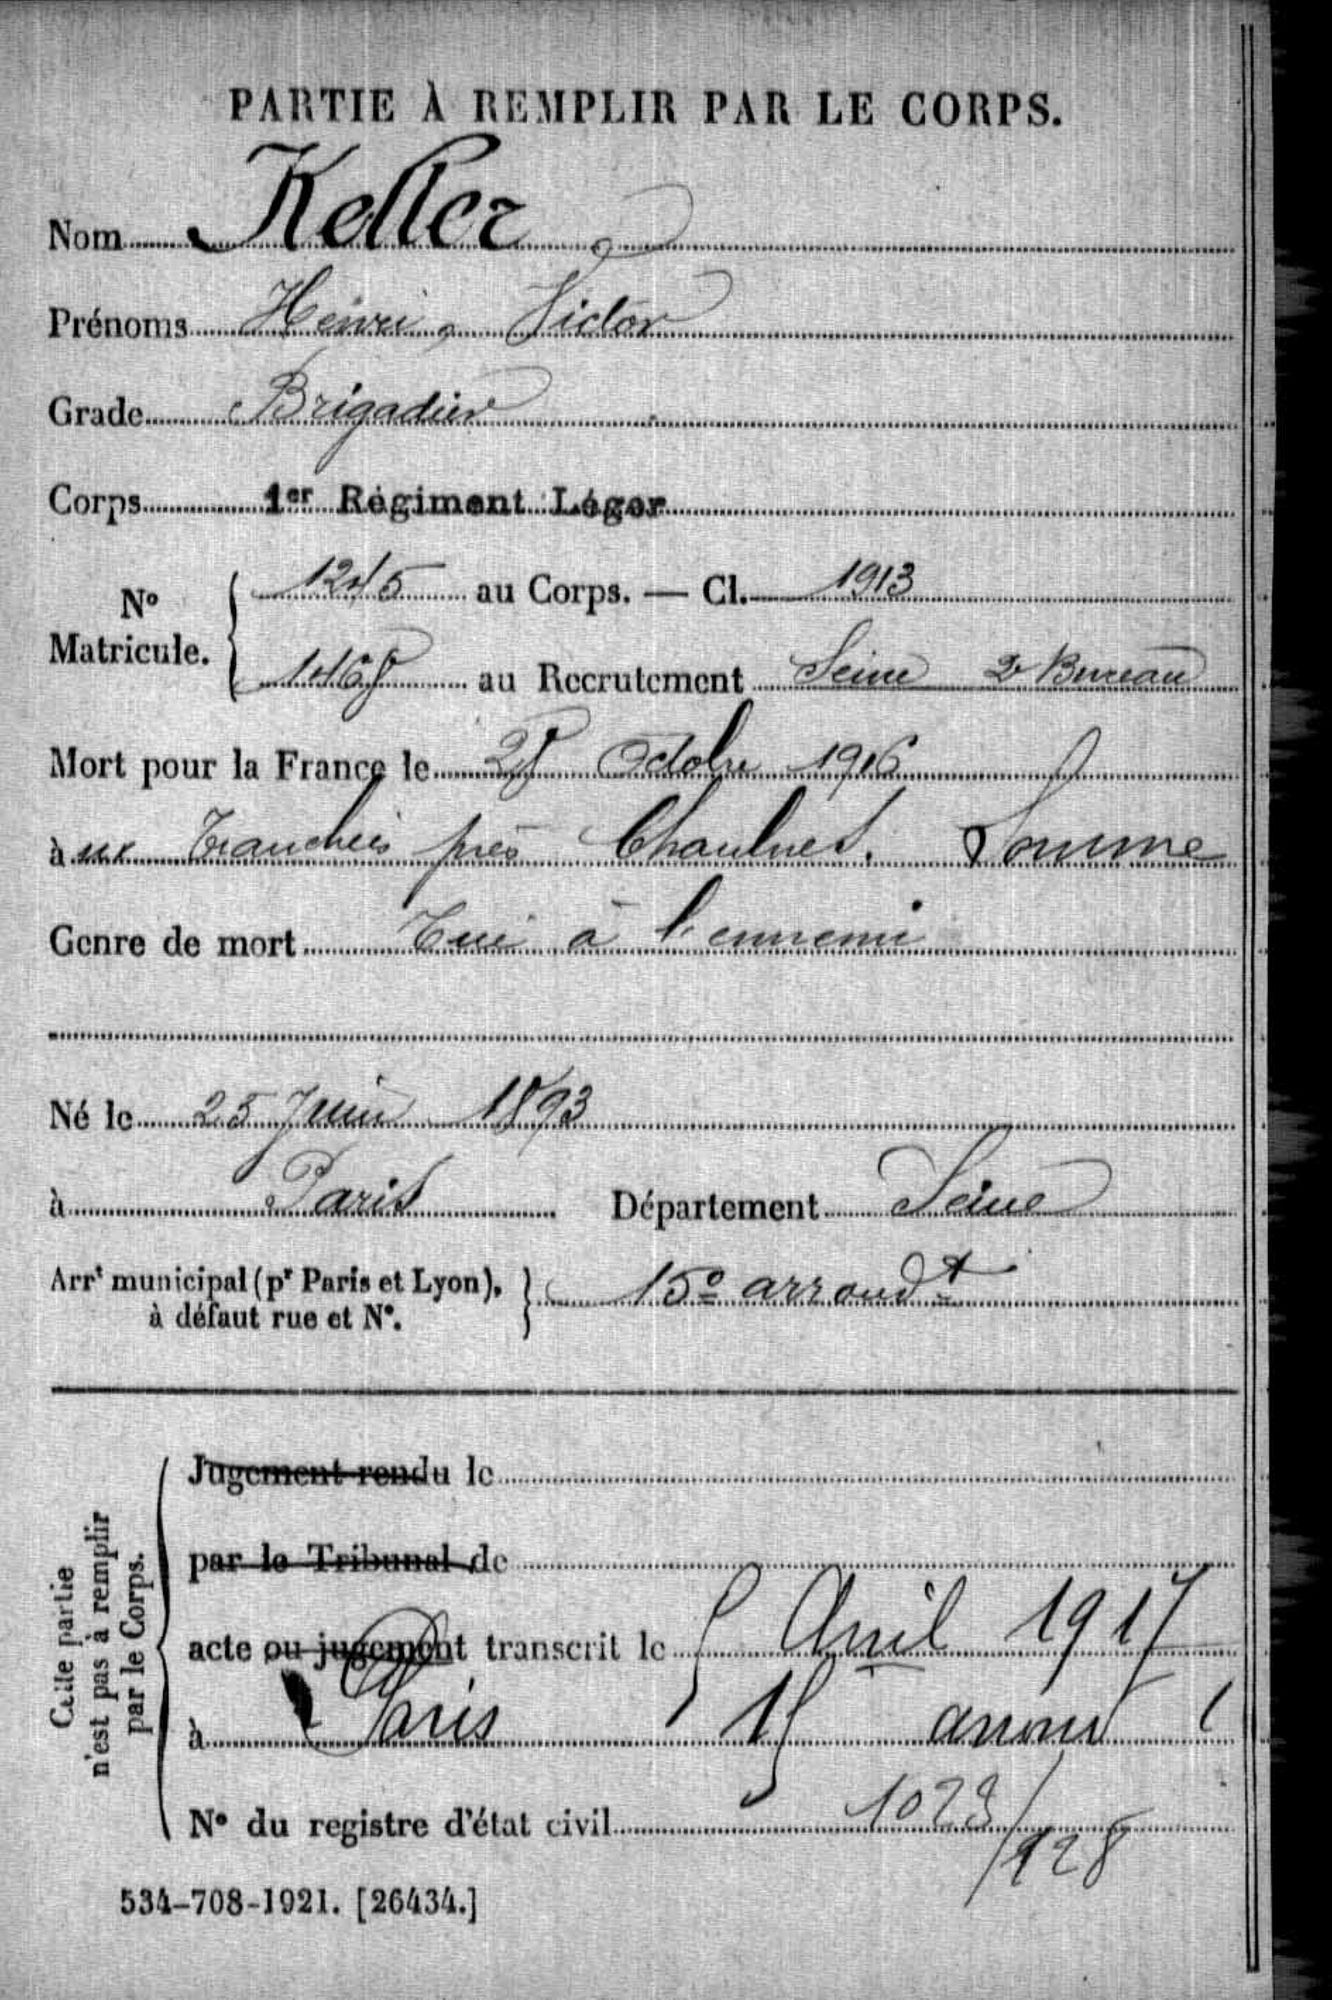 PARTIE À REMPLIR PAR LE CORPS.
Nom Keller
Prénoms Henri, Victor
Grade Brigadier
Corps 1er Régiment Léger
N° Matricule. 1245 au Corps. — Cl. 1913
1468 au Recrutement Seine 2e Bureau
Mort pour la France le 28 Octobre 1916
à ux Tranchées près Chaulnes. Somme
Genre de mort Tué à l'ennemi
Né le 25 Juin 1893
à Paris Département Seine
Arrt municipal (pr Paris et Lyon), à défaut rue et N°. 15e arrondt
Cette partie n'est pas à remplir par le Corps.
Jugement rendu le
par le Tribunal de
acte ou jugement transcrit le 5 Avril 1917
à Paris 15 arront
N° du registre d'état civil 1023/128
534-708-1921. [26434.]